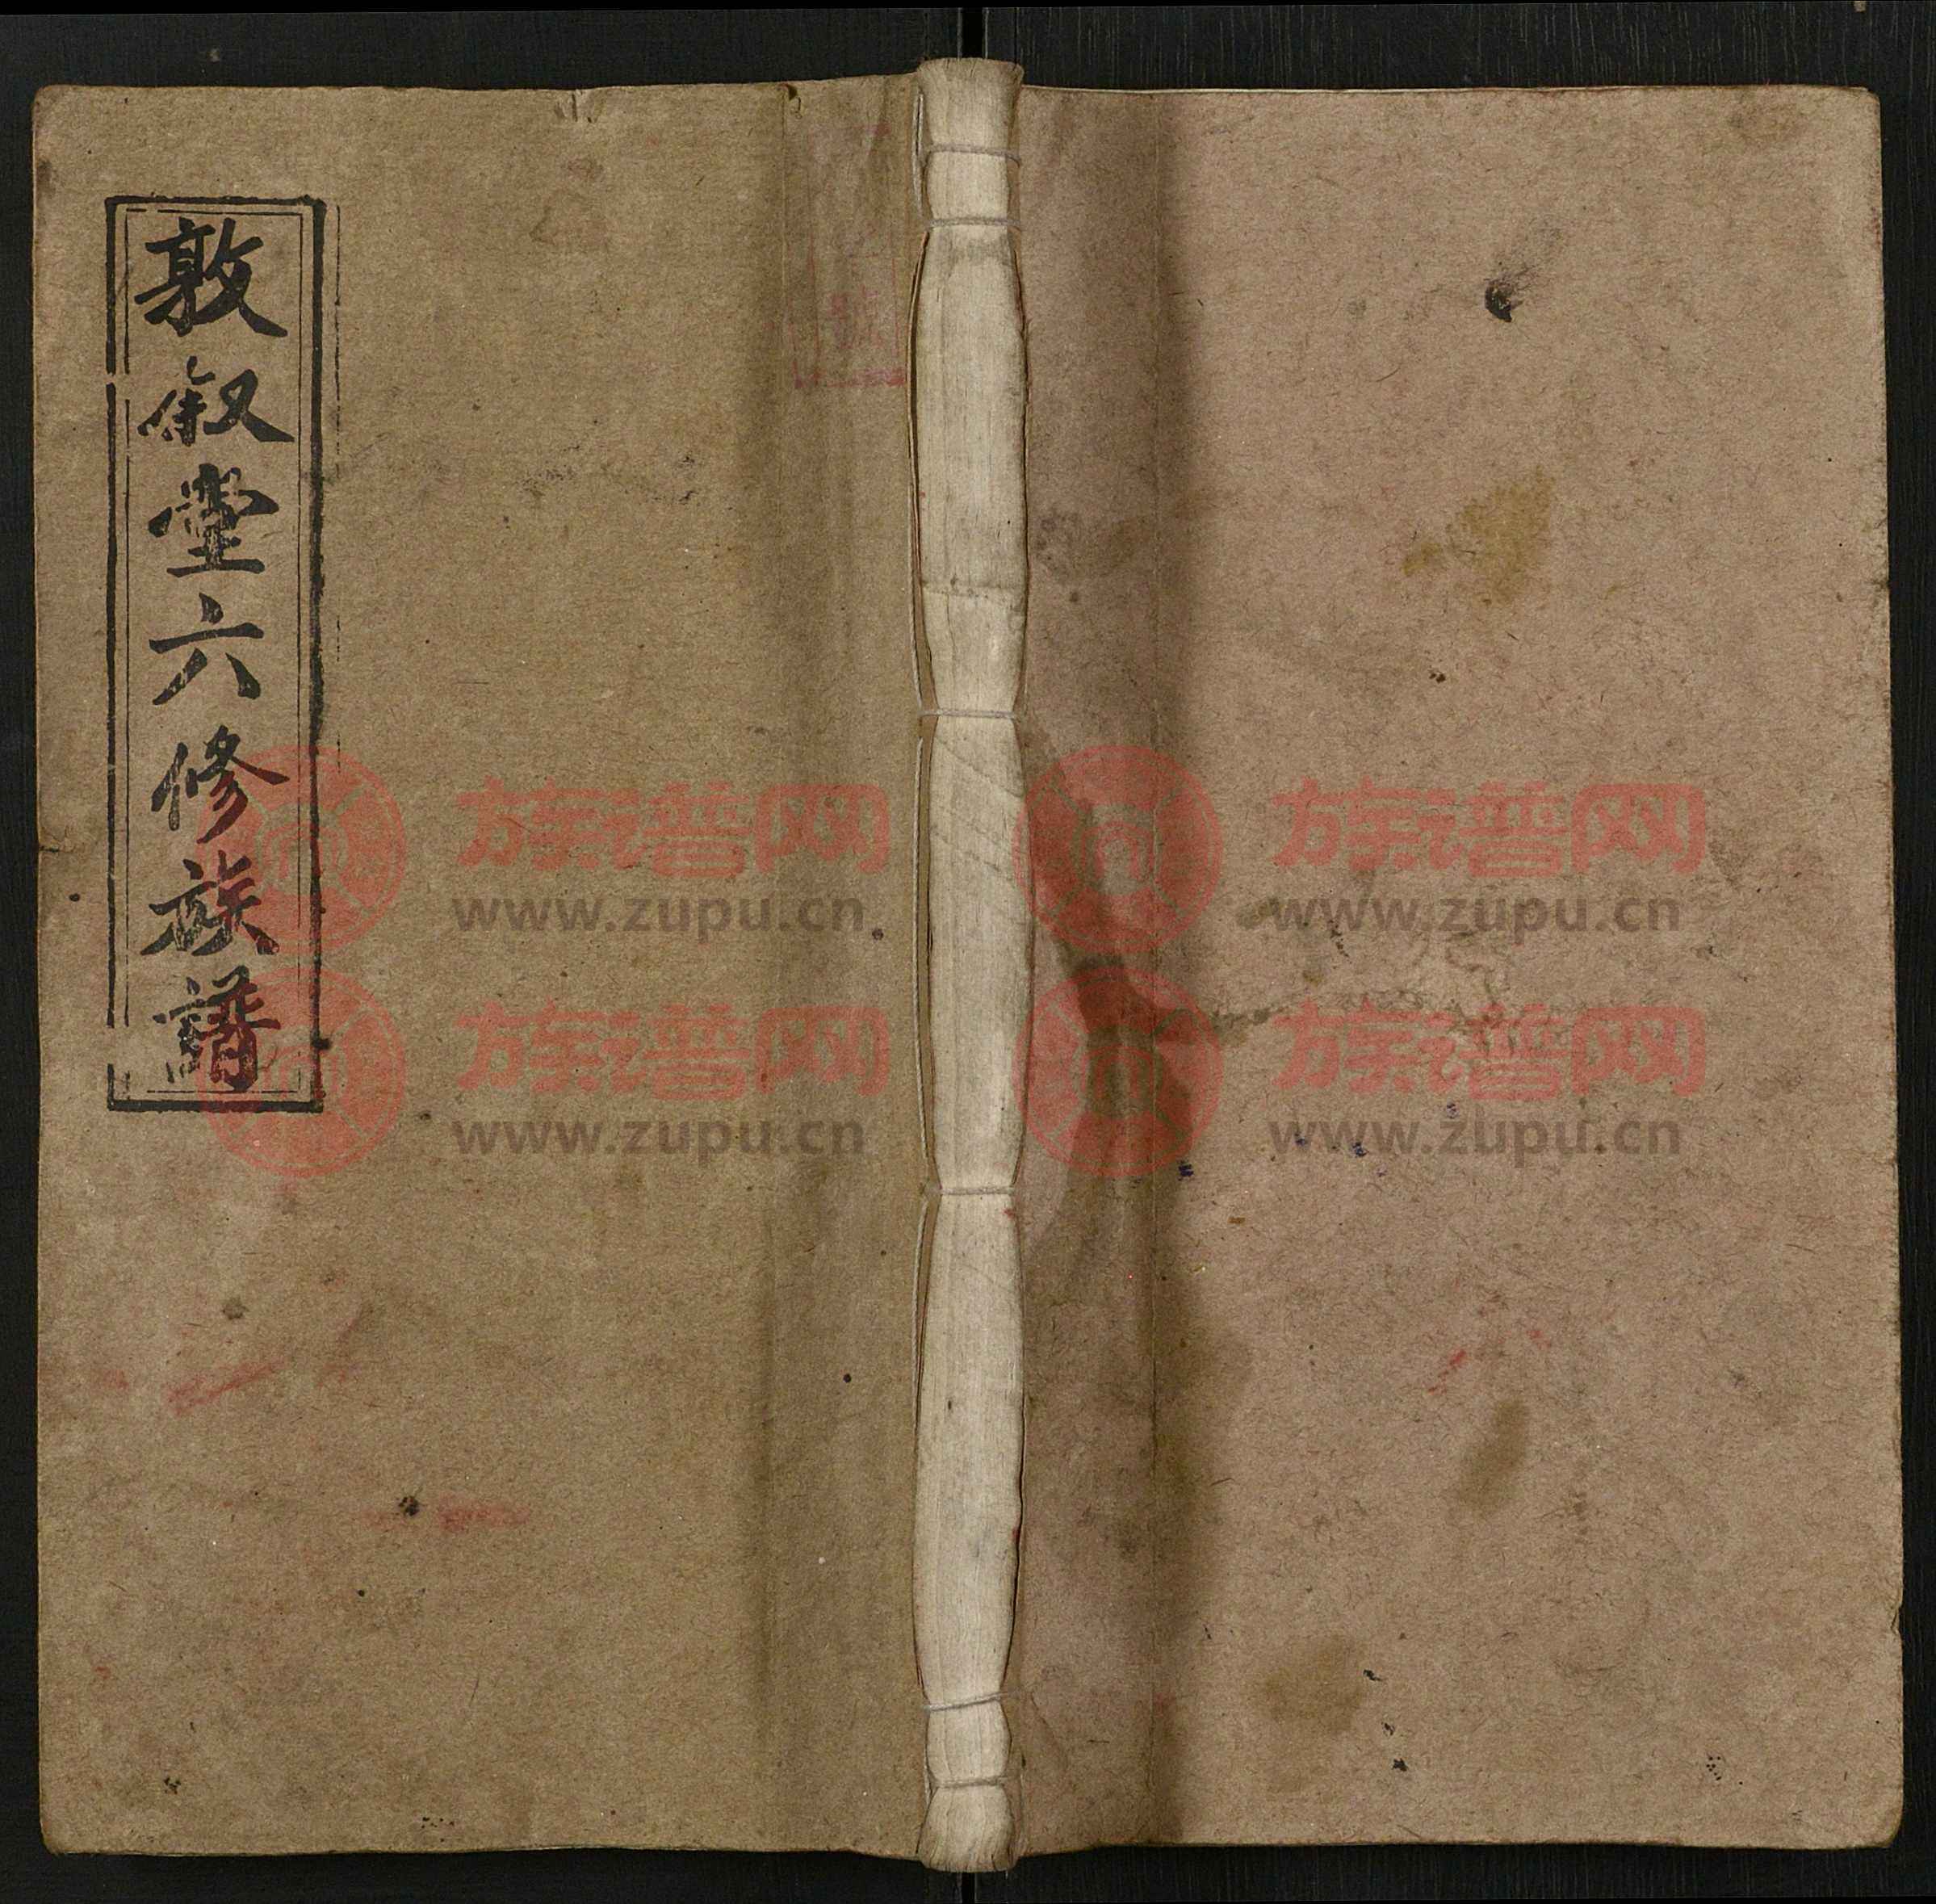 敦叙堂六修族譜
號
族谱网
www.zupu.cn
族谱网
www.zupu.cn
族谱网
www.zupu.cn
族谱网
www.zupu.cn